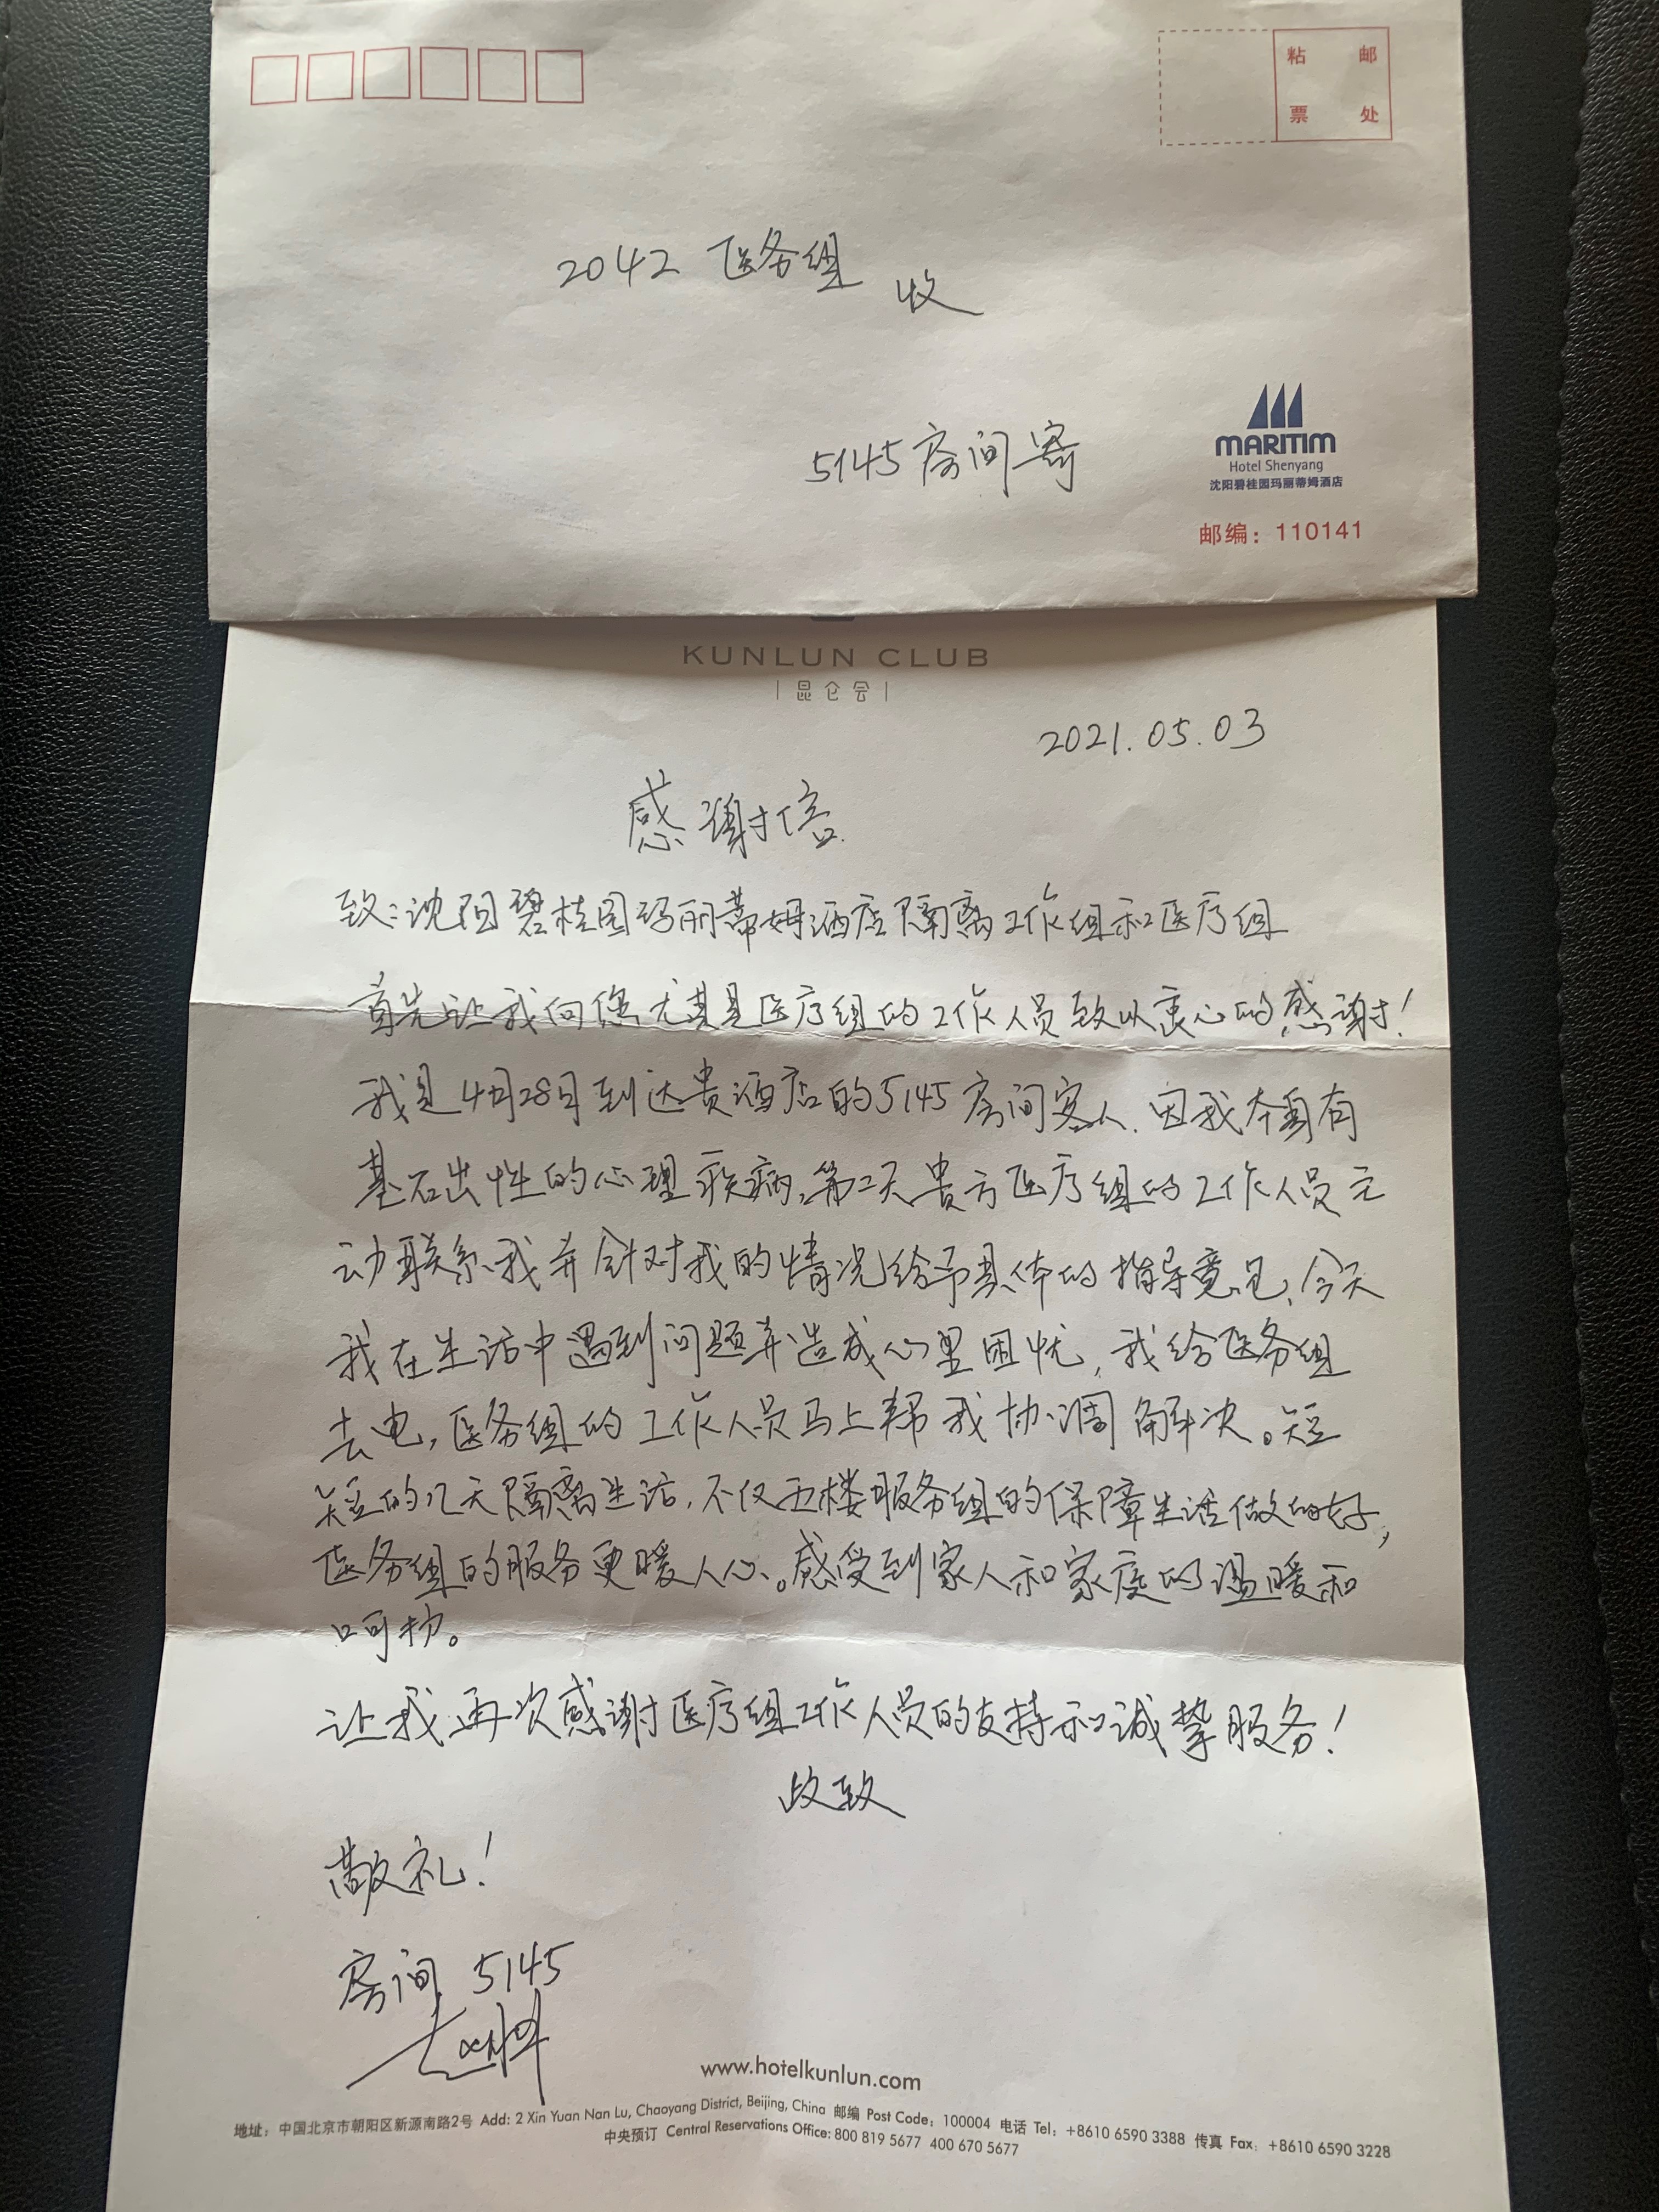 粘 邮
票 处
2042 医务组 收
5145房间寄
MARITIM
Hotel Shenyang
沈阳碧桂园玛丽蒂姆酒店
邮编：110141
KUNLUN CLUB
昆仑会
2021.05.03
感谢信
致：沈阳碧桂园玛丽蒂姆酒店隔离工作组和医疗组
首先让我向您尤其是医疗组的工作人员致以衷心的感谢！
我是4月28日到达贵酒店的5145房间客人.因我本身有
基础性的心理疾病,第二天贵方医疗组的工作人员主
动联系我并针对我的情况给予具体的指导意见,今天
我在生活中遇到问题并造成心里困忧,我给医务组
去电,医务组的工作人员马上帮我协调解决。短
短的几天隔离生活,不仅五楼服务组的保障生活做的好,
医务组的服务更暖人心。感受到家人和家庭的温暖和
呵护。
让我再次感谢医疗组工作人员的支持和诚挚服务！
致
敬礼！
房间 5145
www.hotelkunlun.com
地址：中国北京市朝阳区新源南路2号 Add: 2 Xin Yuan Nan Lu, Chaoyang District, Beijing, China 邮编 Post Code：100004 电话 Tel：+8610 6590 3388 传真 Fax：+8610 6590 3228
中央预订 Central Reservations Office: 800 819 5677 400 670 5677